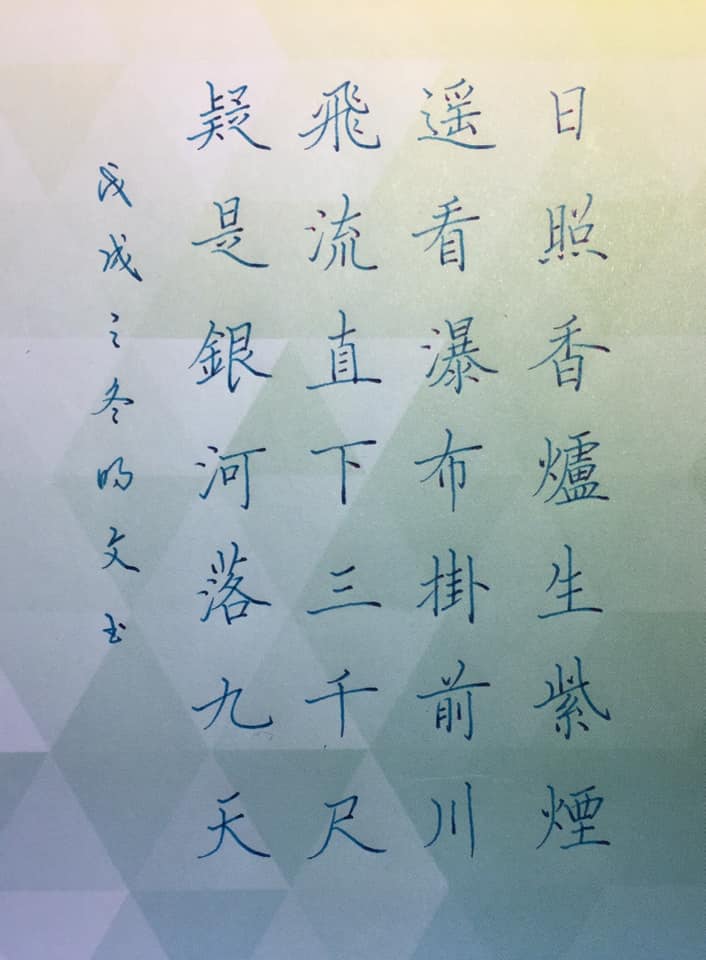 日照香爐生紫煙
遥看瀑布掛前川
飛流直下三千尺
疑是銀河落九天
戊戌之冬明文书